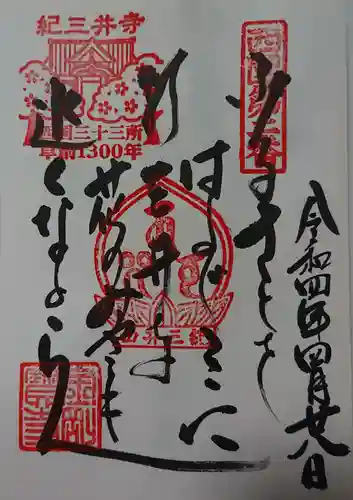 令和四年四月廿八日
西国第二番
ふるさとを
はるばるここに
紀三井寺
花の都も
近くなるらん
紀三井寺
西国三十三所
草創1300年
紀三井寺